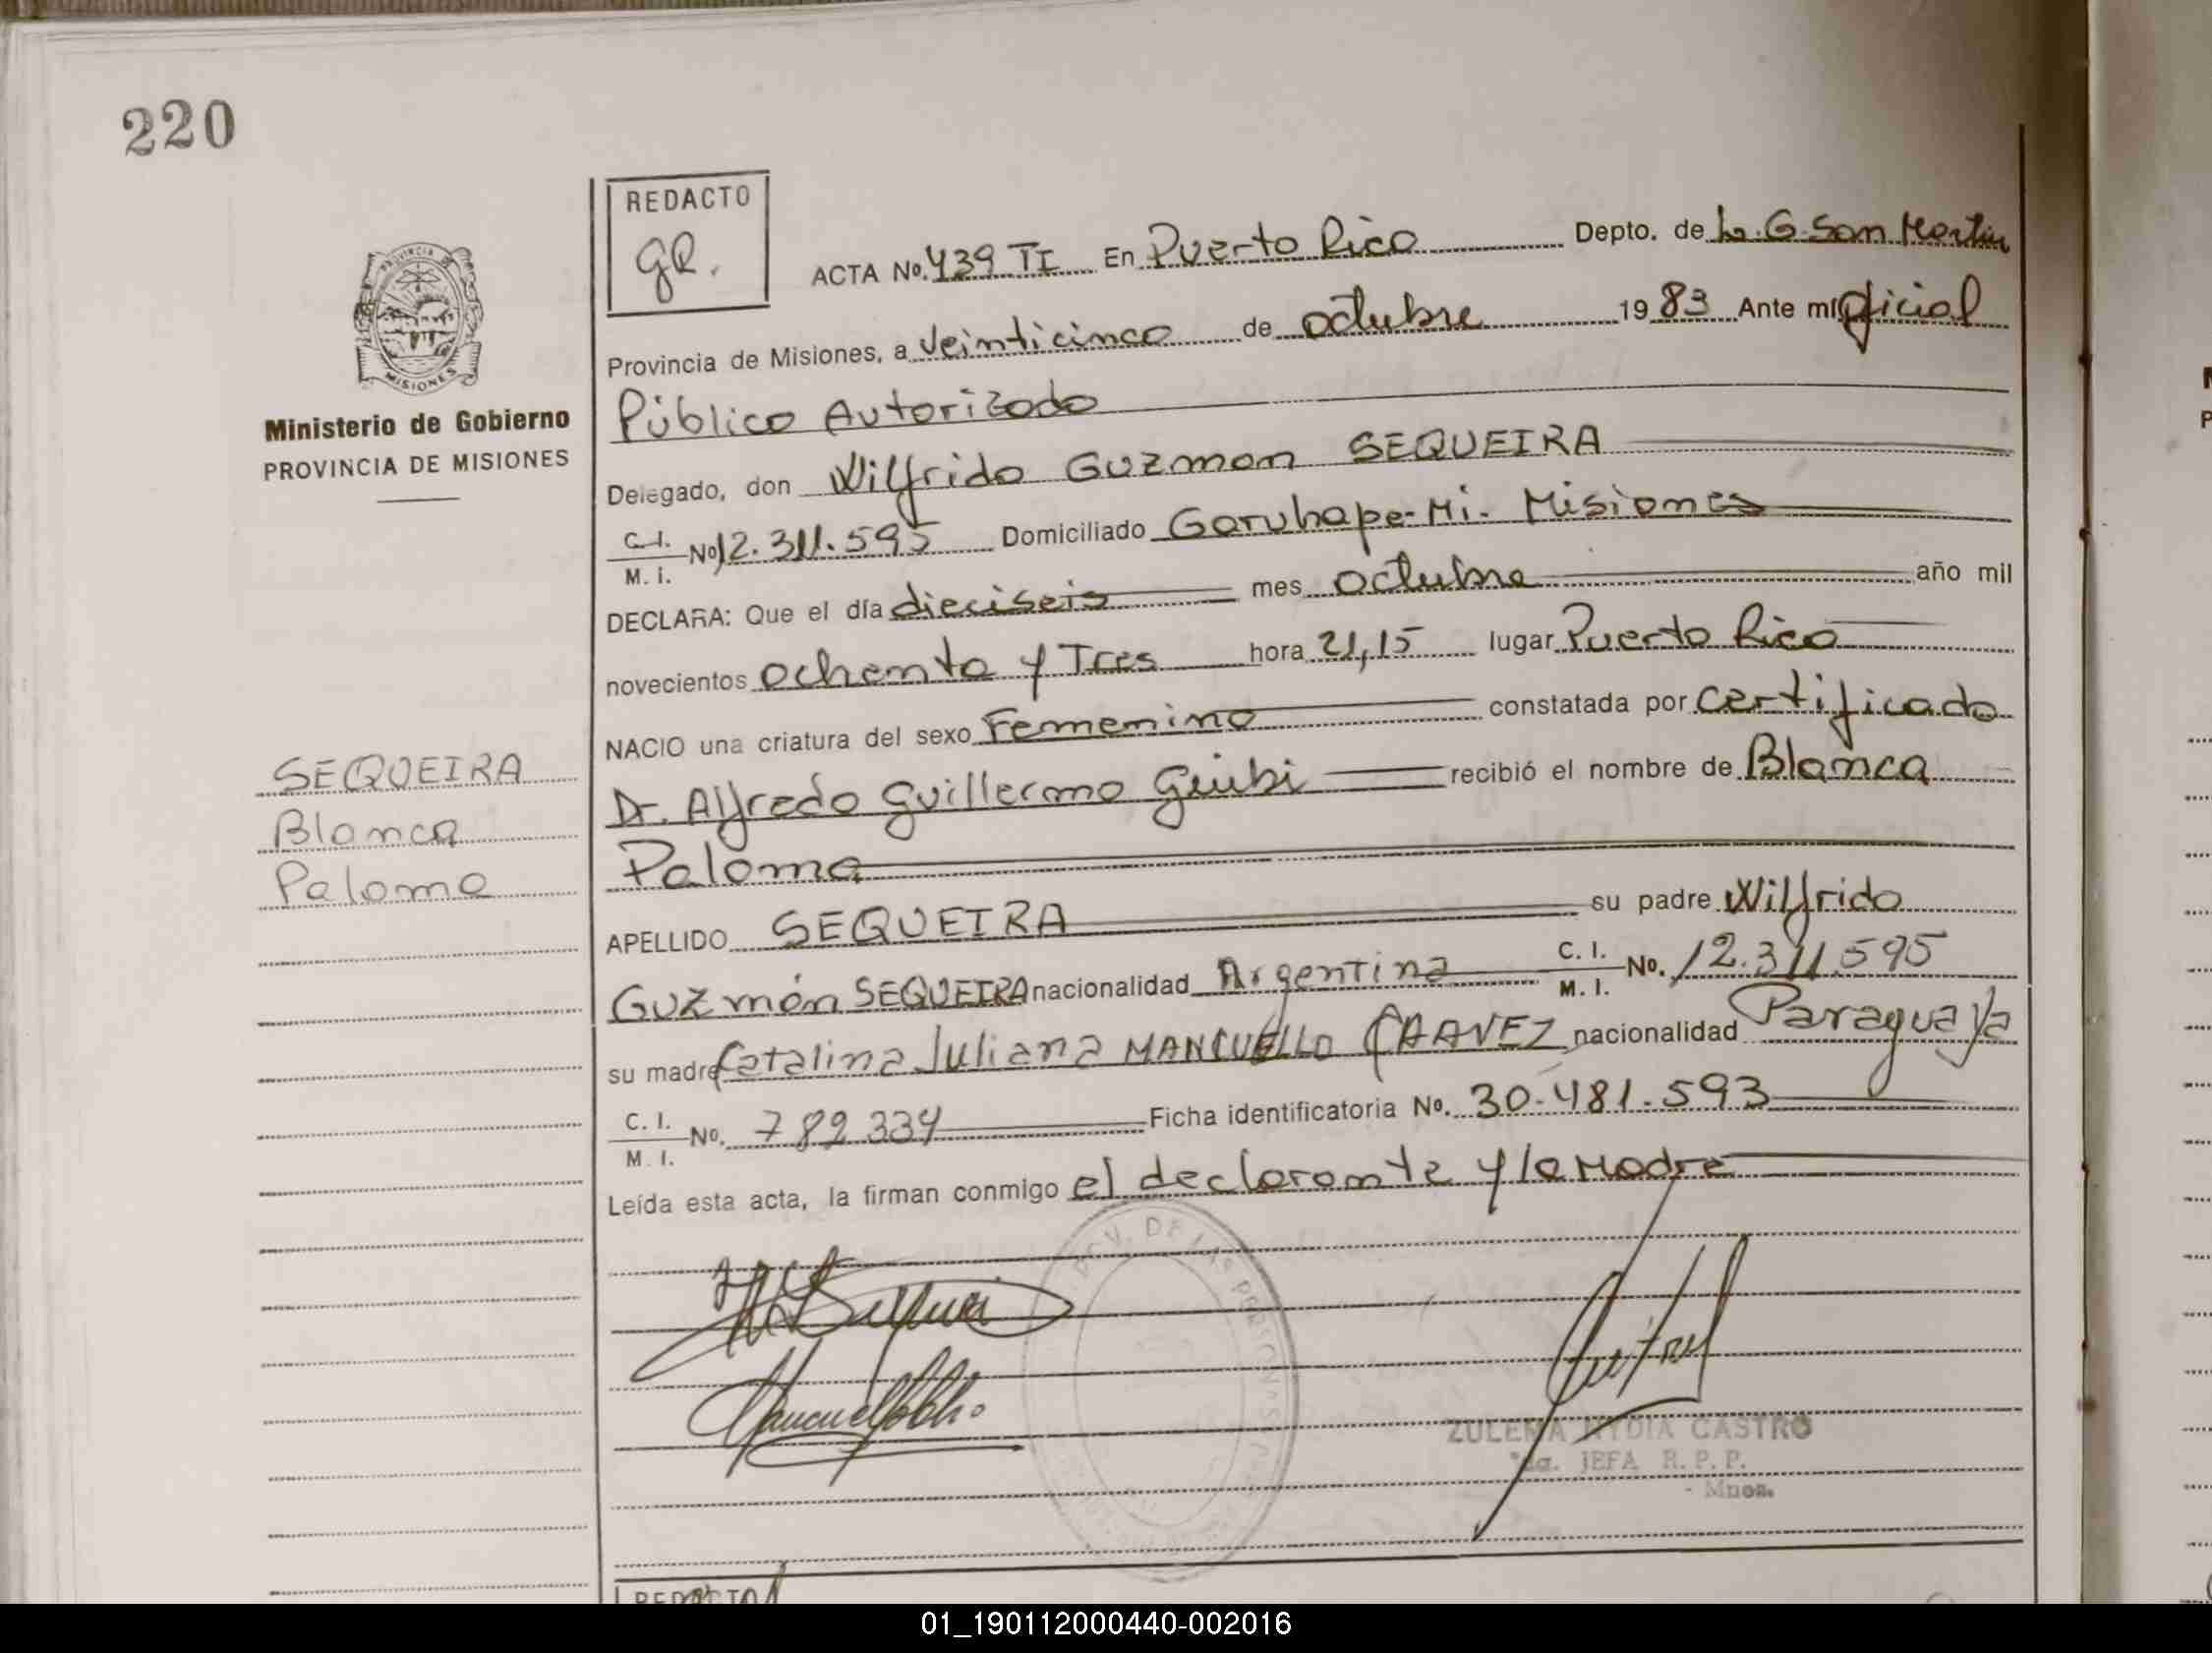 220
REDACTO
gR.
ACTA No. 439 TI En Puerto Rico Depto. de L. G. San Martin
Provincia de Misiones, a veinticinco de octubre 1983 Ante mí oficial
Público Autorizado
Delegado, don Wilfrido Guzman SEQUEIRA
C.I. M.I. No 12.311.595 Domiciliado Garuhape-Mi- Misiones
DECLARA: Que el día dieciseis mes octubre año mil
novecientos ochenta y Tres hora 21,15 lugar Puerto Rico
NACIO una criatura del sexo Femenino constatada por certificado
Dr. Alfredo Guillermo Giubi recibió el nombre de Blanca
Paloma
APELLIDO SEQUEIRA su padre Wilfrido
Guzmón SEQUEIRA nacionalidad Argentina C.I. M.I. No. 12.311.595
su madre Catalina Juliana MANCUELLO CHAVEZ nacionalidad Paraguaya
C.I. M.I. No. 782334 Ficha identificatoria No. 30.481.593
Leída esta acta, la firman conmigo el declarante y la Madre
PROVINCIA
MISIONES
Ministerio de Gobierno
PROVINCIA DE MISIONES
SEQUEIRA
Blanca
Paloma
DE LAS PERSONAS
ZULEMA NYDIA CASTRO
JEFA R.P.P.
- Mnes.
REDACTO
01_190112000440-002016